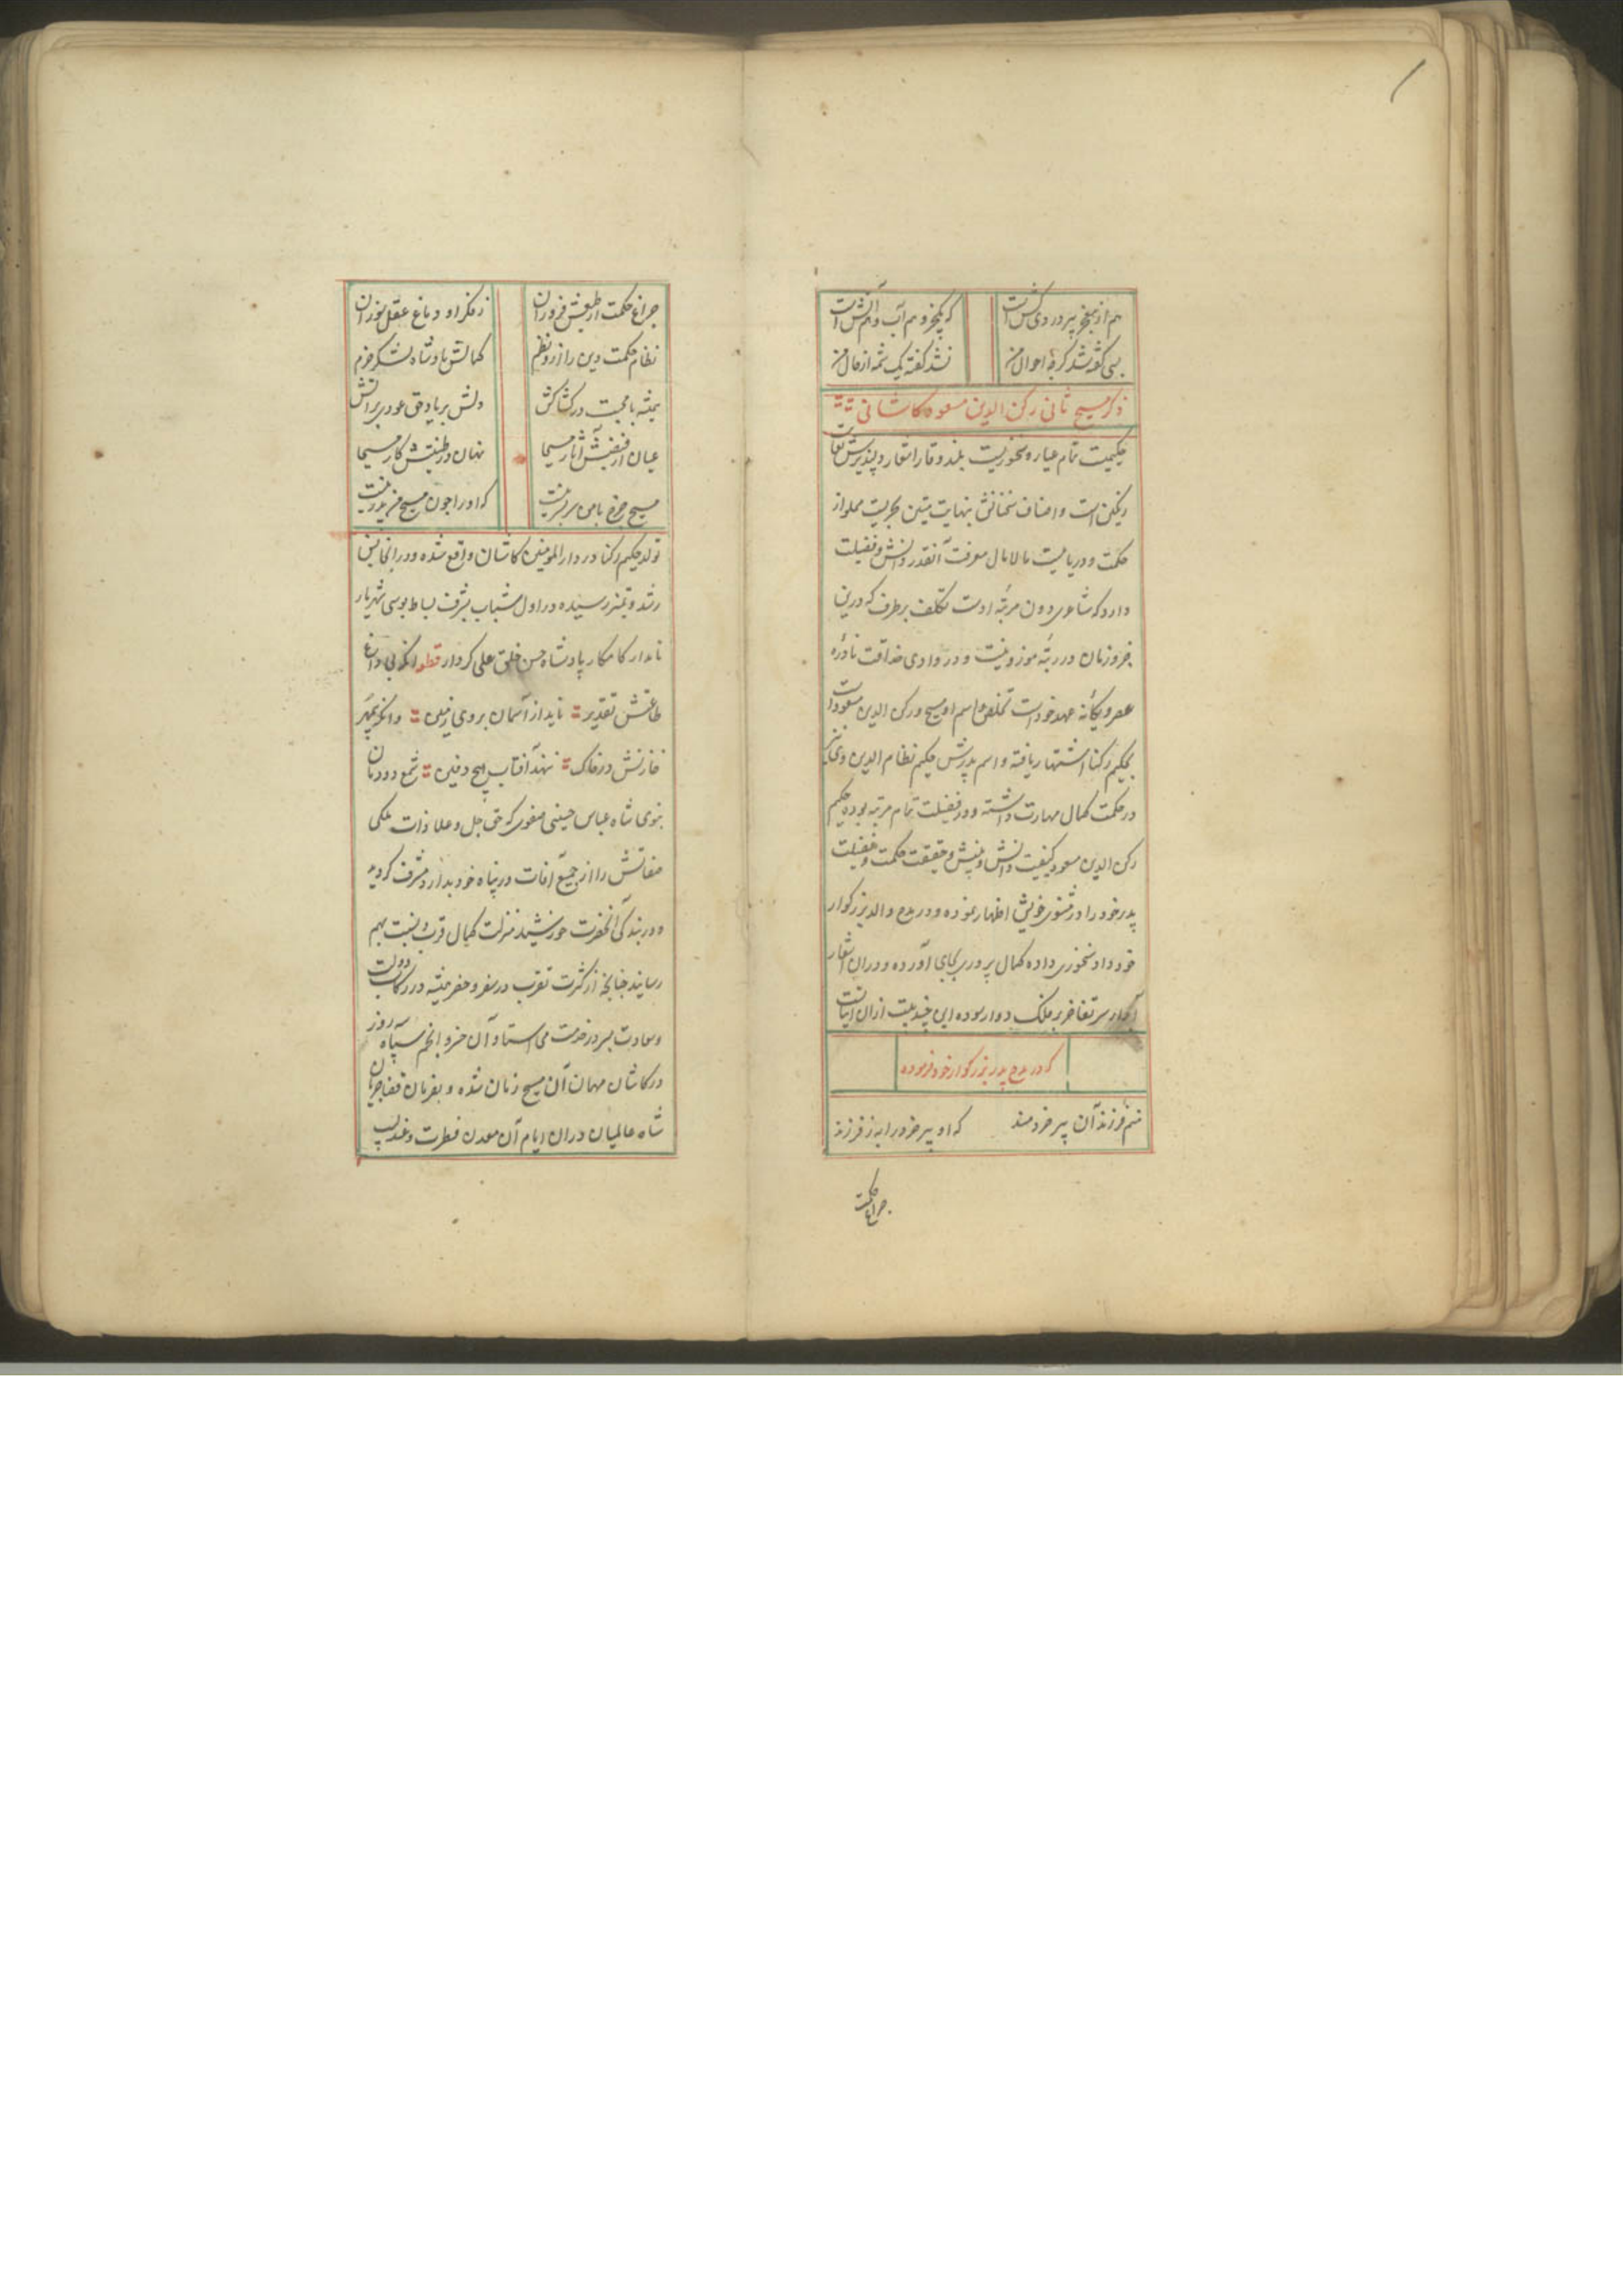 هم از نم پرورد وی کشت است
که یکجزو هم آب و هم آتش است
بسی گفته شد گرچه احوال من
نشد گفته یک شمه از حال من
ذکر مسیح ثانی رکن الدین مسعود کاشانی
حکیمیست تمام عیار و سخنوریست بلند وقار اشعار دلپذیرش بغایت
رنگین است و اصناف سخنانش بنهایت متین بحریست مملو از
حکمت و دریائیست مالامال معرفت آنقدر دانش و فضیلت
دارد که شاعری دون مرتبه اوست تکلف برطرف که درین
جزو زمان در رتبه موزونیت و در وادی حذاقت نادره
عصر و یگانه عهد خود است تخلص و اسم او مسیح و رکن الدین مسعود است
بحکیم رکنا اشتهار یافته و اسم پدرش حکیم نظام الدین و علی
در حکمت کمال مهارت داشته و در فضیلت تمام مرتبه بوده حکیم
رکن الدین مسعود کیفیت دانش و بینش و حقیقت حکمت و فضیلت
پدر خود را در مثنوی خویش اظهار نموده و در مدح والد بزرگوار
خود داد سخنوری داده کمال پروری بجای آورده و دران اشعار
آبدار سر تفاخر بر فلک دوار سوده این چند بیت ازان ابیاتست
که در مدح پدر بزرگوار خود فرموده
منم فرزند آن پیر خردمند
که او پیر خرد را به ز فرزند
چراغ حکمت
چراغ حکمت از طبعش فروزان
ز فکر او دماغ عقل سوزان
نظام حکمت دین را ازو نظم
کمالش پادشاه لشکر حزم
همیشه با محبت در کشاکش
دلش بر یاد حق عود بر آتش
عیان از فیض آثار مسیحا
نهان در طینتش کار مسیحا
مسیح چرخ با من سر بسر نیست
که او را چون مسیح من پدر نیست
تولد حکیم رکنا در دار المومنین کاشان واقع شده و در انجا بسن
رشد و تمیز رسیده در اول شباب بشرف بساط بوسی شهریار
نامدار کامکار پادشاه حسن خلق علی کردار قطعه انکه بی داغ
طاعتش تقدیر ناید از آسمان بروی زمین وانکه بی مهر
خازنش در خاک ننهد آفتاب هیچ دفین شمع دودمان
نبوی شاه عباس حسینی صفوی که حق جل و علا ذات ملکی
صفاتش را از جمیع آفات در پناه خود بدارد مشرف گردیده
و در بندگی آنحضرت خورشید منزلت کمال قرب و نسبت بهم
رسانید چنانچه از کثرت تقرب در سفر و حضر همیشه در رکاب دولت
و سعادت بسر در خدمت می استاد و آن خسرو انجم سپاه روز
در کاشان مهمان آن مسیح زمان شده و بفرمان قضا جریان
شاه عالمیان دران ایام آن معدن فطرت و عندلیب